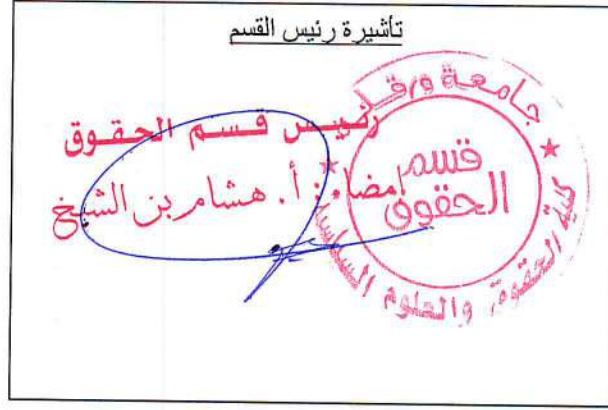 تأشيرة رئيس القسم
رئيس قسم الحقوق
إمضاء: أ. هشام بن الشيخ
جامعة ورقلة
قسم
الحقوق
كلية الحقوق والعلوم السياسية